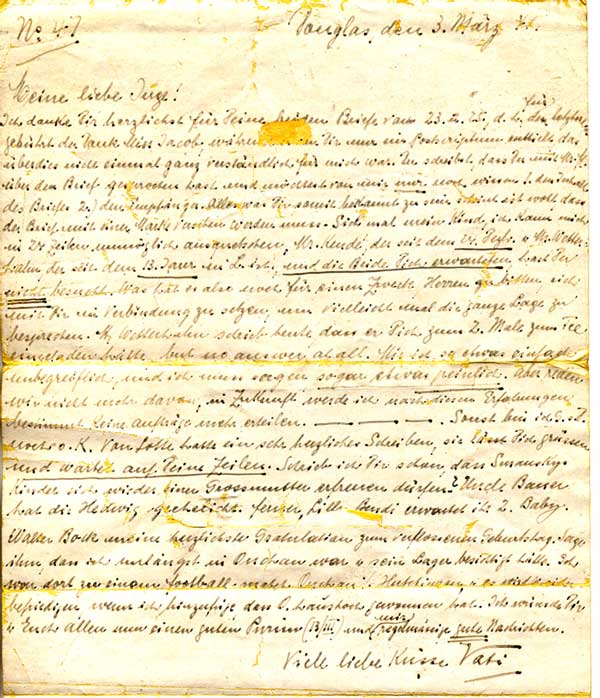 No 47
Douglas, den 3. März 41.
Meine liebe Inge!
Ich danke Dir herzlichst für Deine beiden Briefe vom 23. u. 25., d. h. für den letzten
gebührt der Dank Miss Jacob, während von Dir nur ein Postscriptum enthielt, das
überdies nicht einmal ganz verständlich für mich war. Du schreibst, dass Du mit
über den Brief gesprochen hast und möchtest von mir nur noch wissen 1. den Inhalt
des Briefes 2.) den Empfänger. Alles was Dir somit bekannt zu sein scheint ist wohl dass
der Brief mit einer Marke versehen werden muss. Sieh mal mein Kind, ich kann mich
in 24 Zeilen unmöglich aussprechen. Mr. Kendi, der seit dem u. Mr. Wetter-
hahn der seit dem 13. Januar in L. ist, und die Beide Dich erwarteten hast Du
nicht besucht. Was hat es also noch für einen Zweck Herren zu bitten, sich
mit Dir in Verbindung zu setzen, um vielleicht mal die ganze Lage zu
besprechen. Mr. Wetterhahn schrieb heute dass er Dich zum 2. Male zum Tee
eingeladen hätte, but no answer at all. Mir ist so etwas einfach
unbegreiflich, und ich muss sagen sogar etwas peinlich. Aber reden
wir nicht mehr davon, in Zukunft werde ich nach diesen Erfahrungen
bestimmt keine Aufträge mehr erteilen. — . — . — . Sonst bin ich G. s. D.
noch o. K. Von Lotte hatte ein sehr herzliches Schreiben, sie lässt Dich grüssen
und wartet auf Deine Zeilen. Schrieb ich Dir schon, dass
Kinder sich wieder einer Grossmutter erfreuen dürfen? Uncle Bauer
hat die Hedwig geheiratet. ferner, Lilli Bendi erwartet ihr 2. Baby.
Walter Bock meine herzlichste Gratulation zum verflossenen Geburtstag. Sage
ihm, dass ich unlängst in Onchan war u. sein Lager besichtigt hätte. Ich
war dort zu einem football-match Onchan : Hutchinson u. es wird beide
befriedigen wenn ich hinzufüge dass O. haushoch gewonnen hat. Ich wünsche Dir
u. Euch allen nun einen guten Purim (13/III) und mir regelmässige gute Nachrichten.
Viele liebe Küsse Vati